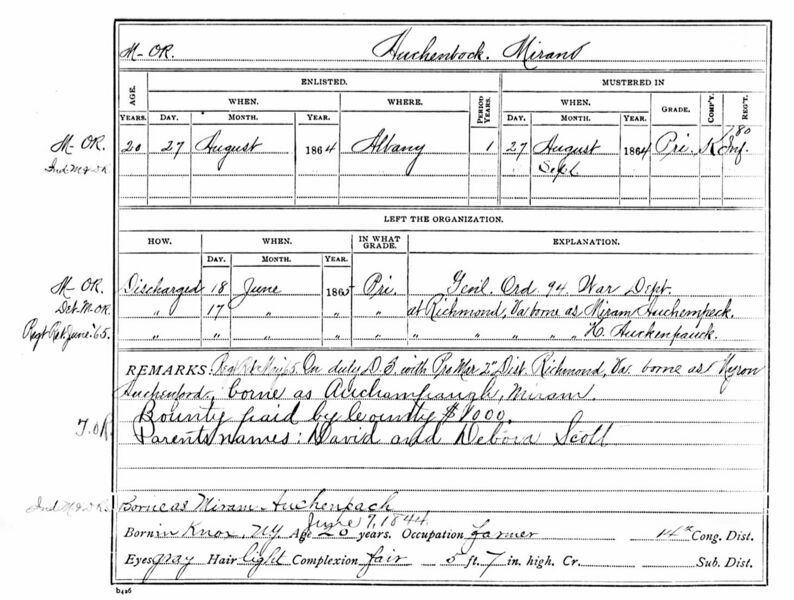 M-OR. Auchenbock. Mirand
AGE. ENLISTED. MUSTERED IN
WHEN. WHERE. PERIOD YEARS. WHEN. GRADE. COMP'Y. REG'T.
YEARS. DAY. MONTH. YEAR. DAY. MONTH. YEAR.
M-OR. 20 27 August 1864 Albany 1 27 August 1864 Pri. K 7. Inf.
Ind. M & D R. Sept
LEFT THE ORGANIZATION.
HOW. WHEN. IN WHAT GRADE. EXPLANATION.
DAY. MONTH. YEAR.
M-OR. Discharged 18 June 1865 Pri. Genl. Ord. 94. War Dept.
Det. M-OR. " 17 " " " at Richmond, Va. borne as Miram Auchempeck.
Regt Ret. June '65. " " " " " " " " " H. Auckenpauck.
REMARKS: Regt Rt May '65. On duty D.S. with Pro Mar 2" Dist. Richmond, Va. borne as Myron
Auchenford. borne as Auchampaugh, Miram.
Bounty paid by County $1000.
T.OR. Parents names: David and Debora Scott
Ind M & D R. Borne as Miram Auchenpach
June 7, 1844
Born in Knox, N.Y. Age 20 years. Occupation farmer 14th Cong. Dist.
Eyes gray Hair light Complexion fair 5 ft. 7 in. high. Cr. Sub. Dist.
b426